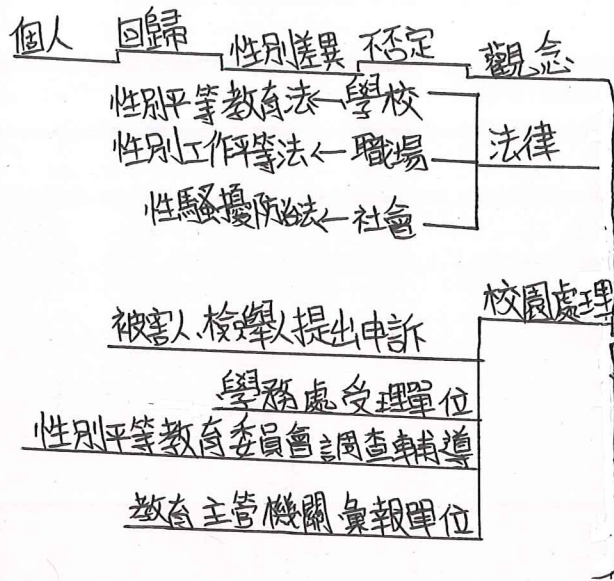 個人 回歸 性別差異 不否定 觀念
性別平等教育法←學校
性別工作平等法←職場
法律
性騷擾防治法←社會
校園處理
被害人、檢舉人提出申訴
學務處受理單位
性別平等教育委員會調查輔導
教育主管機關彙報單位